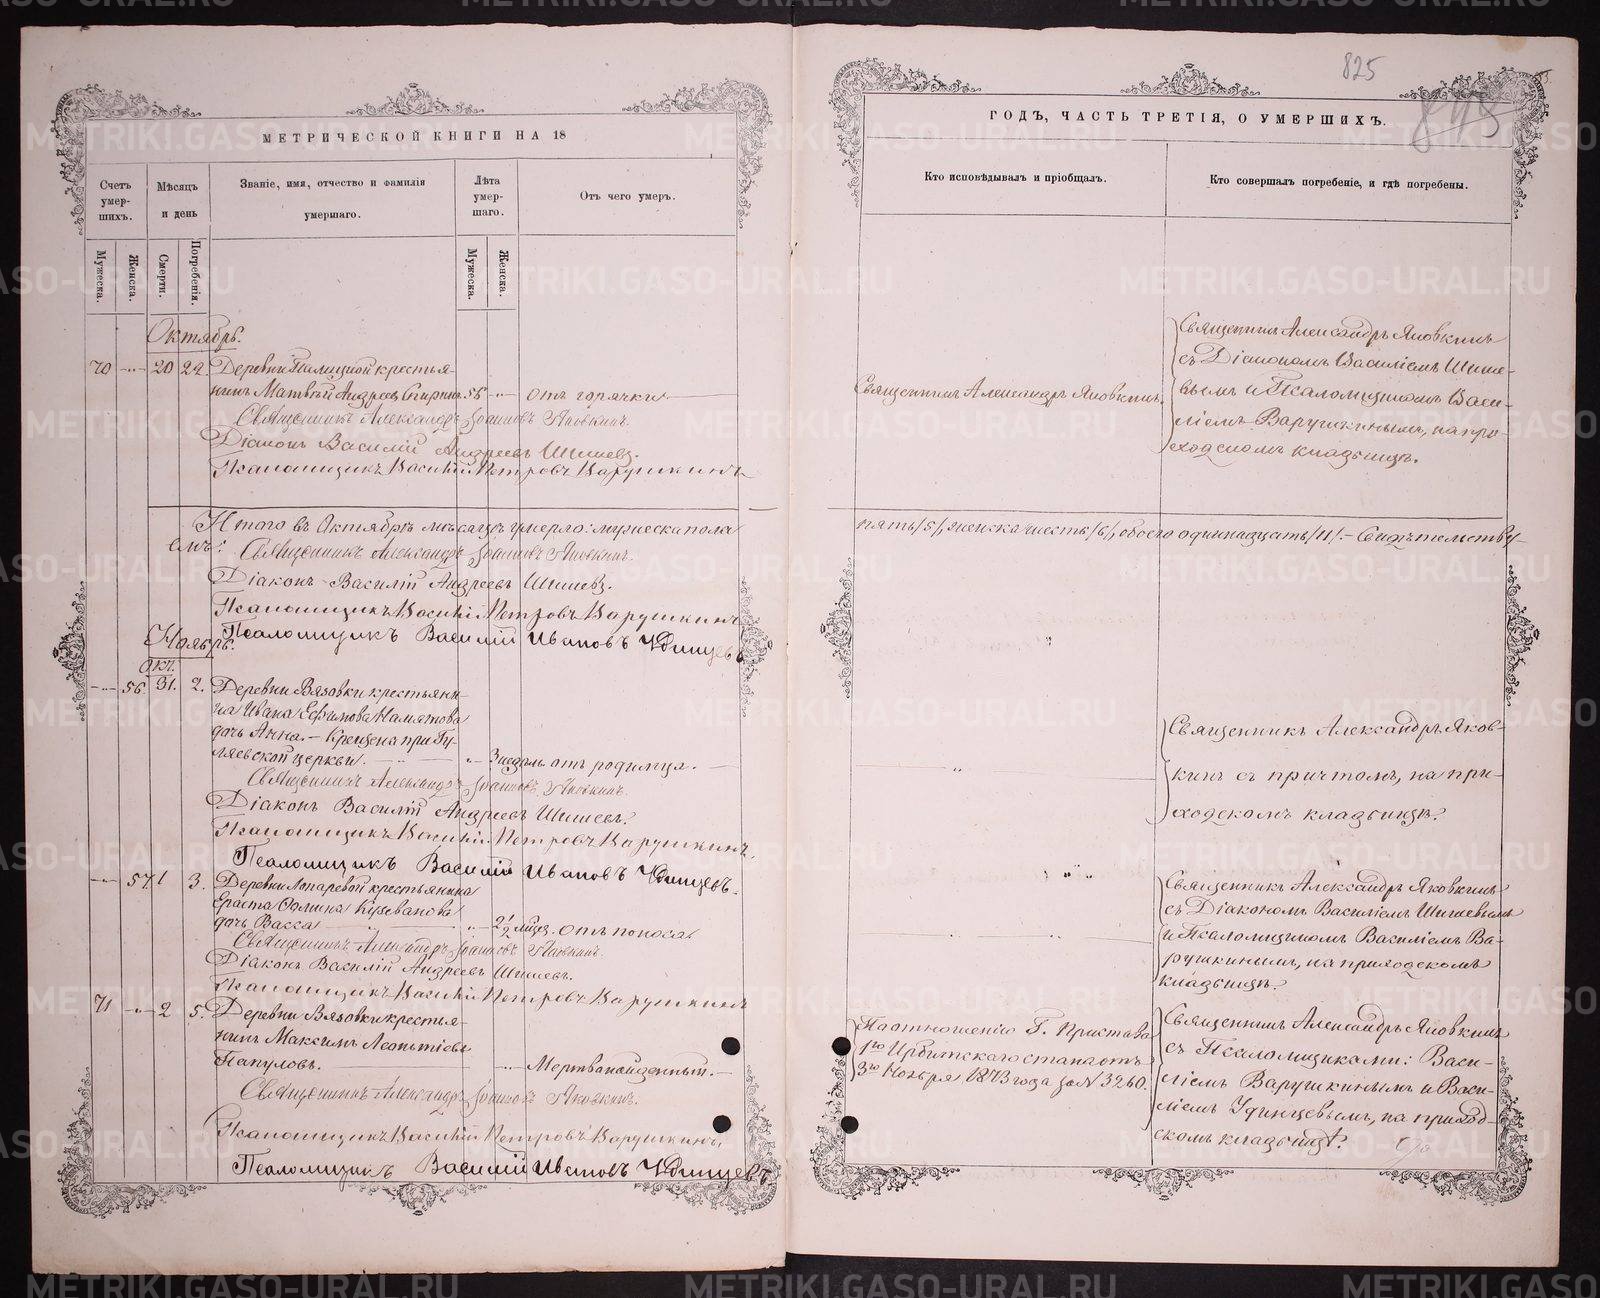 МЕТРИЧЕСКОЙ КНИГИ НА 18
Счетъ умер-шихъ.
Мѣсяцъ и день
Званіе, имя, отчество и фамилія умершаго.
Лѣта умер-шаго.
Отъ чего умеръ.
Мужеска.
Женска.
Смерти.
Погребенія.
Мужеска.
Женска.
Октябрь.
70 20 22. Деревни крестья-
нинъ Матвѣй Андреевъ 56 отъ горячки
Священникъ Александръ Іоанновъ Яковкинъ.
Діаконъ Василій Андреевъ Шишевъ.
Псаломщикъ Василій Петровъ Варушкинъ
Итого въ Октябрѣ мѣсяцѣ умерло: мужеска пола
емъ: Священникъ Александръ Іоанновъ Яковкинъ.
Діаконъ Василій Андреевъ Шишевъ.
Псаломщикъ Василій Петровъ Варушкинъ
Псаломщикъ Василій Ивановъ Удинцевъ
Ноябрь.
Окт.
56 31. 2. Деревни Вязовки крестьяни-
на Ивана Ефимова
дочь Анна. – Крещена при Гу-
ляевской церкви. 3 недѣль отъ родимца.
Священникъ Александръ Іоанновъ Яковкинъ.
Діаконъ Василій Андреевъ Шишевъ.
Псаломщикъ Василій Петровъ Варушкинъ.
Псаломщикъ Василій Ивановъ Удинцевъ.
57 1 3. Деревни Лопаревой крестьянина
Ераста Кузеванова
дочь Васса 2 1/2 мѣс. отъ поноса
Священникъ Александръ Іоанновъ Яковкинъ.
Діаконъ Василій Андреевъ Шишевъ.
Псаломщикъ Василій Петровъ Варушкинъ
71 2 5. Деревни Вязовки крестья-
нинъ Максимъ Леонтіевъ
Папуловъ. Мертвонайденный.
Священникъ Александръ Іоанновъ Яковкинъ.
Псаломщикъ Василій Петровъ Варушкинъ
Псаломщикъ Василій Ивановъ Удинцевъ
825
ГОДЪ, ЧАСТЬ ТРЕТІЯ, О УМЕРШИХЪ.
Кто исповѣдывалъ и пріобщалъ.
Кто совершалъ погребеніе, и гдѣ погребены.
Священникъ Александръ Яковкинъ.
Священникъ Александръ Яковкинъ
съ Діакономъ Василіемъ Шише-
вымъ и Псаломщикомъ Васи-
ліемъ Варушкинымъ, на при-
ходскомъ кладбищѣ.
пять /5/, женска шесть /6/, обоего одиннадцать /11/. – Свидѣтельству-
Священникъ Александръ Яков-
кинъ съ причтомъ, на при-
ходскомъ кладбищѣ.
Священникъ Александръ Яковкинъ
съ Діакономъ Василіемъ Шишевымъ
и Псаломщикомъ Василіемъ Ва-
рушкинымъ, на приходскомъ
кладбищѣ.
По отношенію Г. Пристава
1го Ирбитскаго стана отъ
3го Ноября 1873 года за № 3260.
Священникъ Александръ Яковкинъ
съ Псаломщиками: Васи-
ліемъ Варушкинымъ и Васи-
ліемъ Удинцевымъ, на приход-
скомъ кладбищѣ.
METRIKI.GASO-URAL.RU